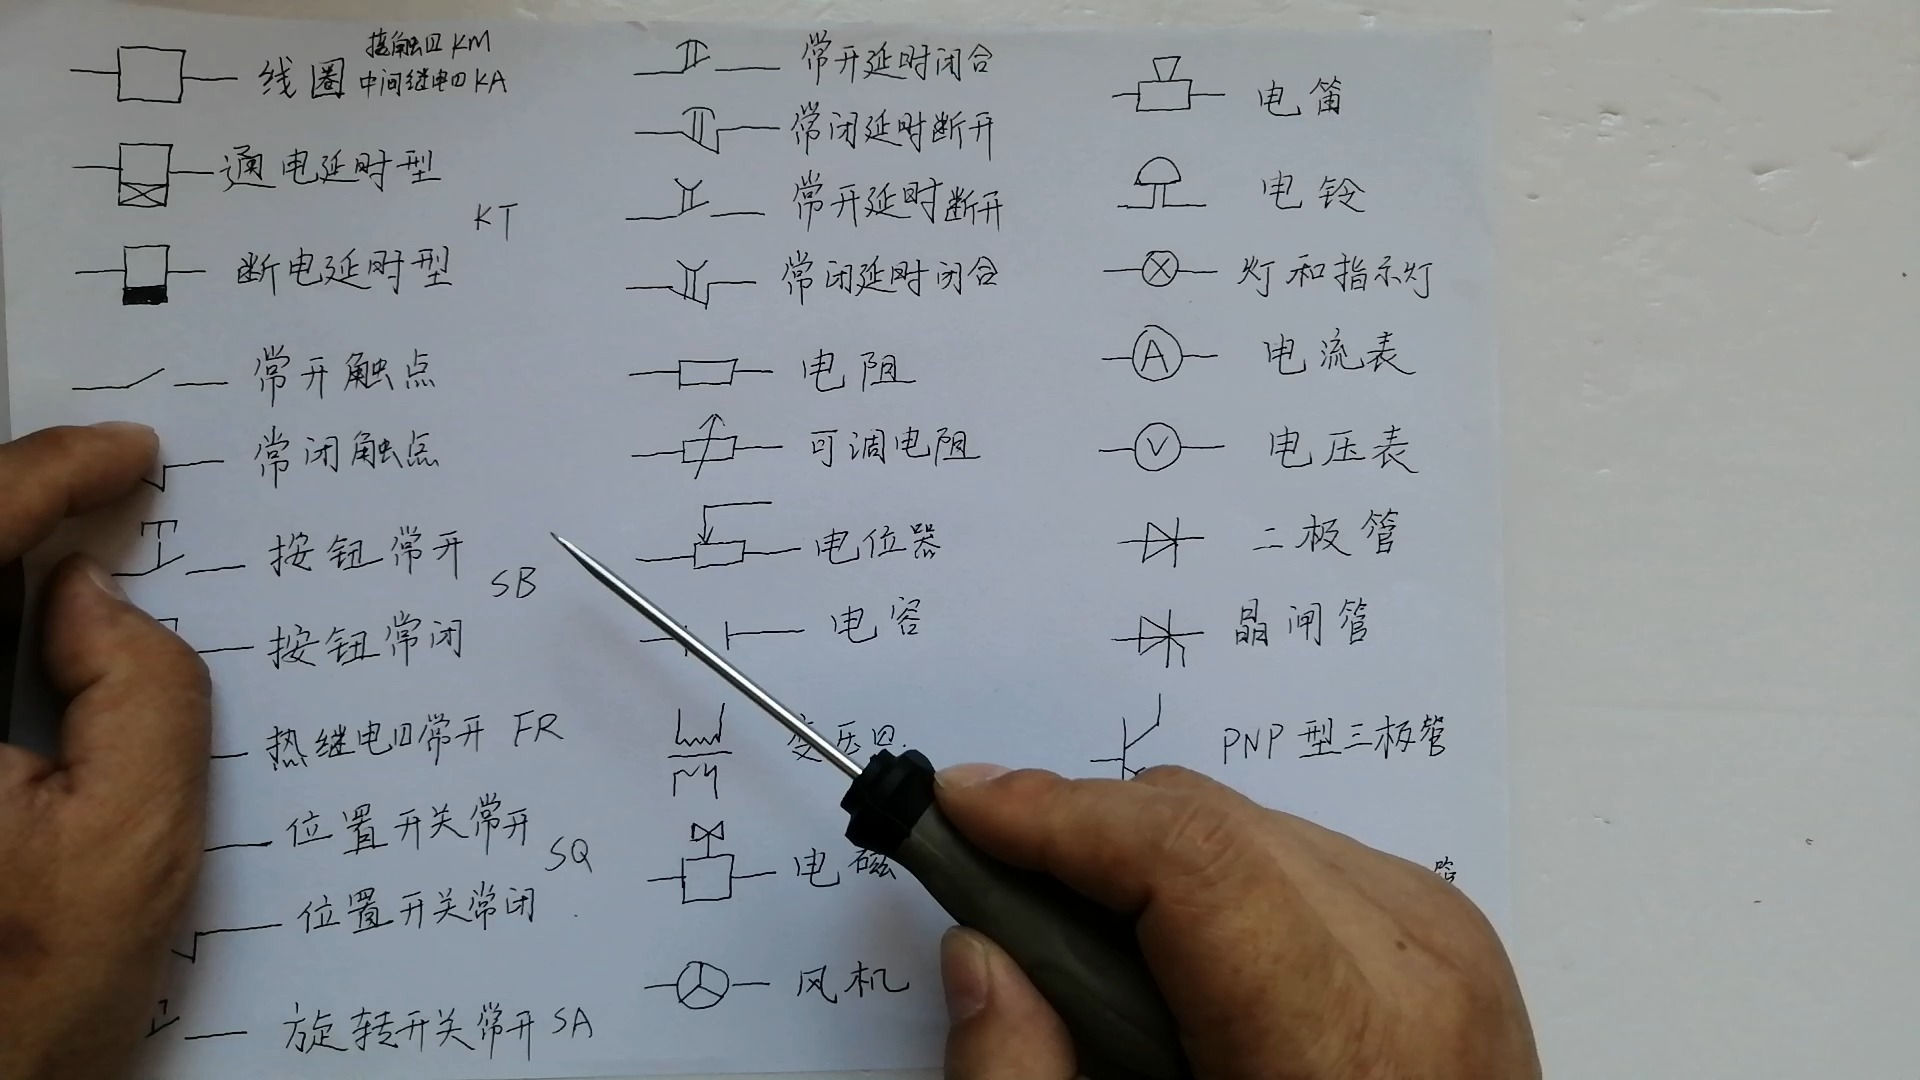 线圈 接触口 KM
中间继电口 KA
通电延时型
KT
断电延时型
常开触点
常闭触点
按钮常开
SB
按钮常闭
热继电口常开 FR
位置开关常开
SQ
位置开关常闭
旋转开关常开 SA
常开延时闭合
常闭延时断开
常开延时断开
常闭延时闭合
电阻
可调电阻
电位器
电容
变压口
电磁
风机
电笛
电铃
灯和指示灯
A 电流表
V 电压表
二极管
晶闸管
PNP型三极管